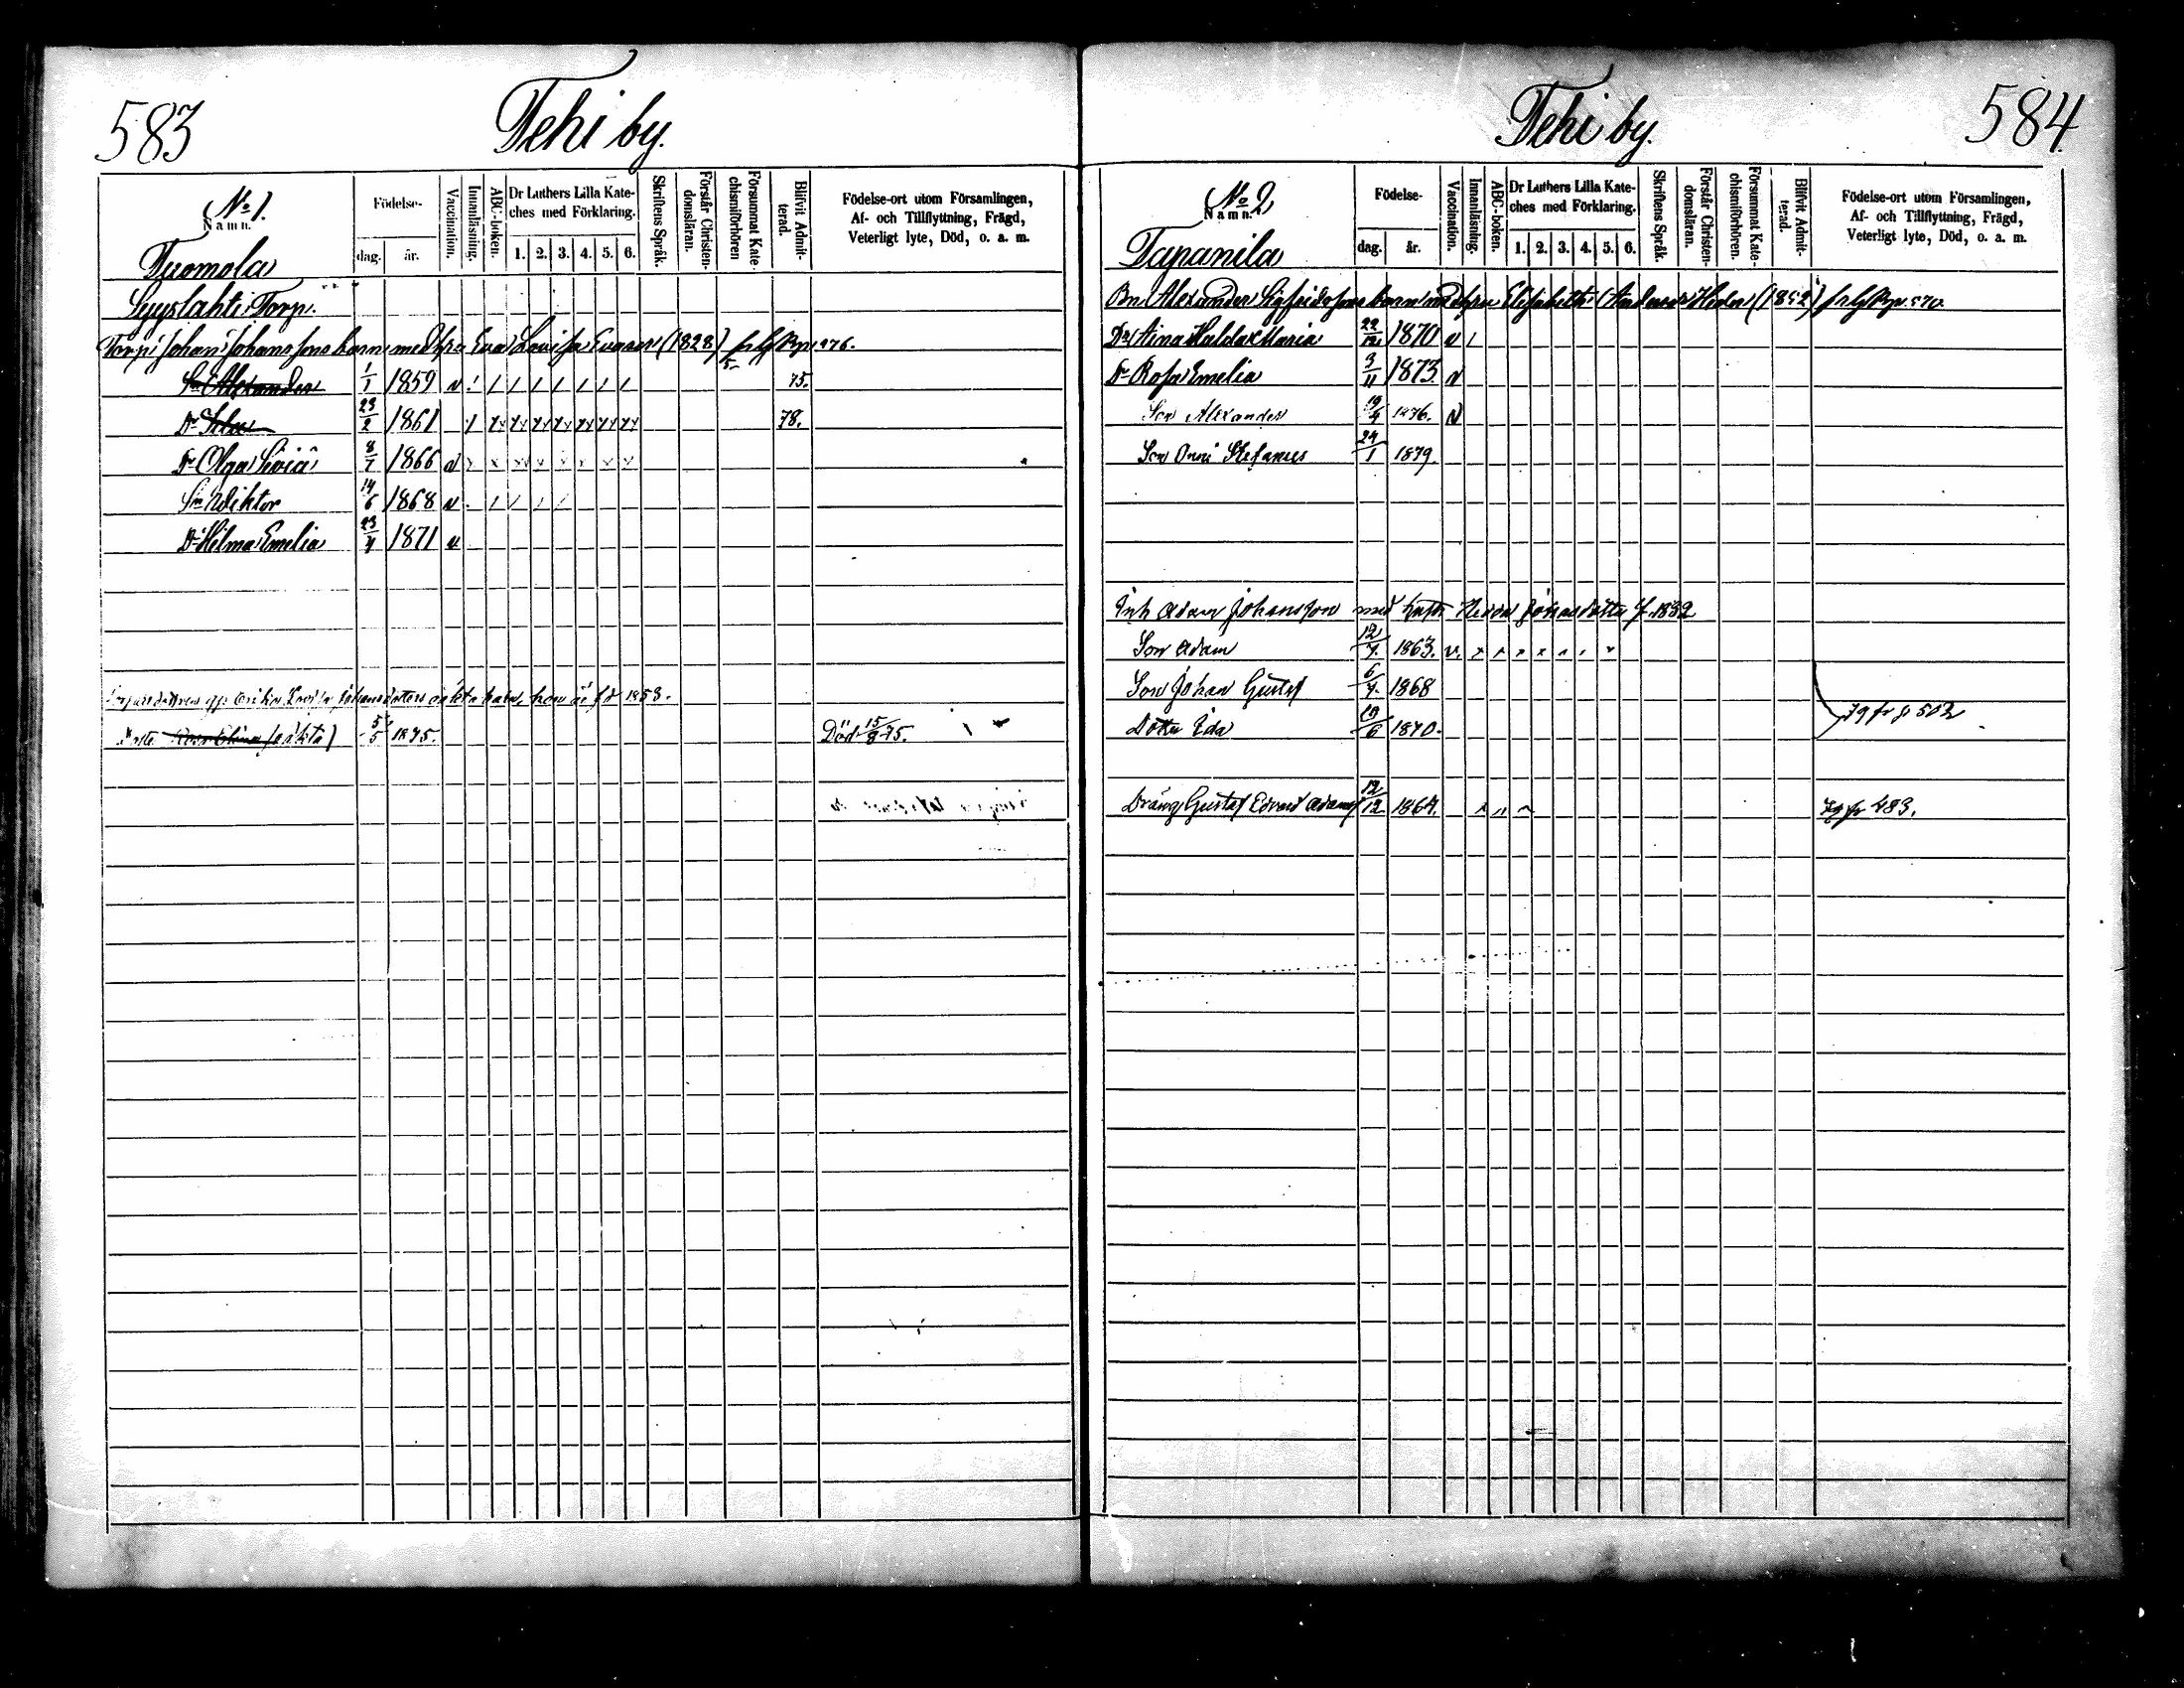 583
Tehi by.
No 1.
Namn.
Födelse-
dag.
år.
Vaccination.
Innanläsning.
ABC-boken.
Dr Luthers Lilla Kate-
ches med Förklaring.
1. 2. 3. 4. 5. 6.
Skriftens Språk.
Förstår Christen-
domsläran.
Försummat Kate-
chismiförhören
Blifvit Admit-
terad.
Födelse-ort utom Församlingen,
Af- och Tillflyttning, Frägd,
Veterligt lyte, Död, o. a. m.
Tuomola
Syyslahti Torp.
Torp. Johan Johanssons barn med hru Eva Lovisa (1828)
Sn Alexander 1/1 1859 v 75.
Dr 23/2 1861 78.
Dr Olga Sivia 8/7 1866 v
Sn Wiktor 14/6 1868 v
Dr Hilma Emelia 23/4 1871 v
Johansdotters oäkta barn, hon är fd 1853.
(oäkta) 5/5 1875. Död 15/8 75.
584
Tehi by.
No 2
Namn.
Födelse-
dag.
år.
Vaccination.
Innanläsning.
ABC-boken.
Dr Luthers Lilla Kate-
ches med Förklaring.
1. 2. 3. 4. 5. 6.
Skriftens Språk.
Förstår Christen-
domsläran.
Försummat Kate-
chismiförhören.
Blifvit Admit-
terad.
Födelse-ort utom Församlingen,
Af- och Tillflyttning, Frägd,
Veterligt lyte, Död, o. a. m.
Tapanila
Bn. Alexander Sigfridssons barn med hru Elisabeth (1852)
Dr Aina Hulda Maria 22/12 1870 v
Dr Rosa Emelia 3/11 1873. v
Son Alexander 19/4 1876. v
Son Onni Stefanus 24/1 1879.
Inh Adam Johansson med hustr Johansdotter f. 1832
Son Adam 12/7 1863. v.
Son Johan Gustaf 6/7. 1868
Dotter Ida 19/6 1870. 79 fr s 502
Dräng Gustaf Edvard Adamss 12/12 1864. 79 fr 483.